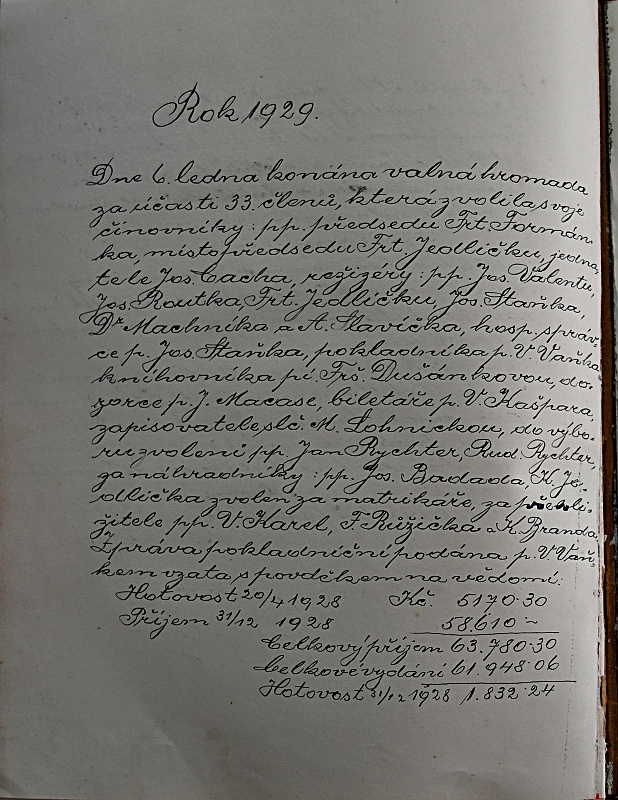 Rok 1929.
Dne 6. ledna konána valná hromada
za účasti 33. členů, která zvolila svoje
činovníky: pp. předsedu Frt. Formán-
ka, místopředsedu Frt. Jedličku, jedna-
tele Jos. Cacha, režizéry: pp. Jos. Valentu,
Jos. Routka, Frt. Jedličku, Jos. Staňka,
Dr Machníka a A. Slavíčka, hosp. správ-
ce p. Jos. Staňka, pokladníka p. V. Vaňka
knihovníka pí. Frš. Dušánkovou, do-
zorce p. J. Macase, biletáře p. V. Kašpara,
zapisovatele slč. M. Lohnickou, do výbo-
ru zvoleni pp. Jan Rychter, Rud. Rychter,
za náhradníky: pp. Jos. Badada, K. Je-
dlička zvolen za matrikáře, za
žitele pp. V. Karel, F. Růžička a K. Branda
Zpráva pokladniční podána p. V. Vaň-
kem vzata s povděkem na vědomí:
Hotovost 20/4 1928 Kč. 5170·30
Příjem 31/12 1928 58.610 –
Celkový příjem 63.780·30
Celkové vydání 61.948·06
Hotovost 31/12 1928 1.832·24